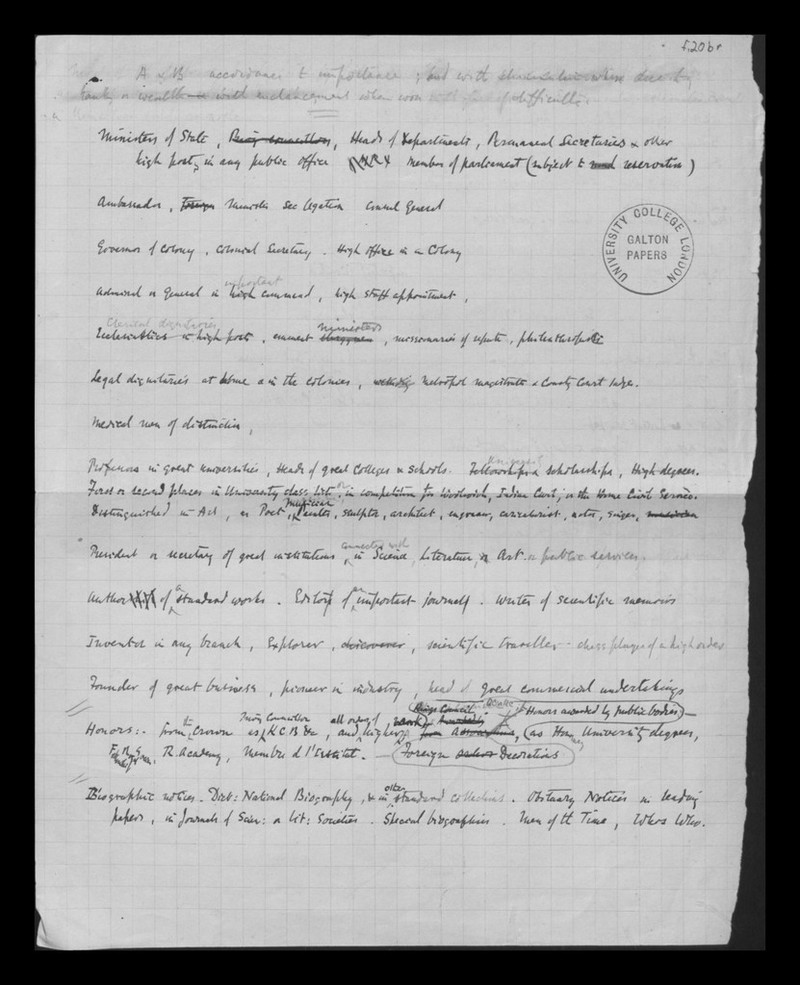 f.20br
A & B accordance to importance, and with diminution when due to
rank or wealth with enhancement when won of difficulty.
Ministers of State, Privy councillors, Heads of Departments, Permanent Secretaries & other
high posts in any public office member of parliament (subject to reservation)
Ambassador, Foreign Minister Sec legation Consul General
Governor of Colony, Colonial Secretary. High office in a Colony
UNIVERSITY COLLEGE LONDON
GALTON PAPERS
important
Admiral or General in high command, high staff appointment,
Clerical dignitaries ministers
Ecclesiastics in high posts, eminent clergymen, missionaries of repute, philanthropists
Legal dignitaries at home or in the colonies, Metropol magistrate & County Court Judge.
Medical men of distinction,
Professors in great Universities, Heads of great Colleges & Schools. Fellowships & scholarships, High degrees.
First or second places in University class lists or in competition for Woolwich, Indian Civil, or the Home Civil Service.
musician
Distinguished in Art, as Poet, Painter, sculptor, architect, engraver, caricaturist, actor, singer, musician
connected with
President or secretary of great institutions in Science, Literature, or Art or public services.
Author of a standard works. Editor of an important journal. Writer of scientific memoirs
Inventor in any branch, Explorer, discoverer, scientific traveller - chess player of a high order
Founder of great business, pioneer in industry, head of great commercial undertakings
Kings Council Honors awarded by public bodies)
Privy Councillor all orders of
Honors:- from the Crown as K.C.B &c, and higher, from (as Hon University degrees,
F.R.S. R. Academy, Membre d l'Institut. Foreign Decorations
other
Biographic notices. Dict: National Biography, & in standard collections. Obituary Notices in leading
papers, in Journals of Scien: or Lit: Societies. Special biographies. Men of the Time, Whos Who.